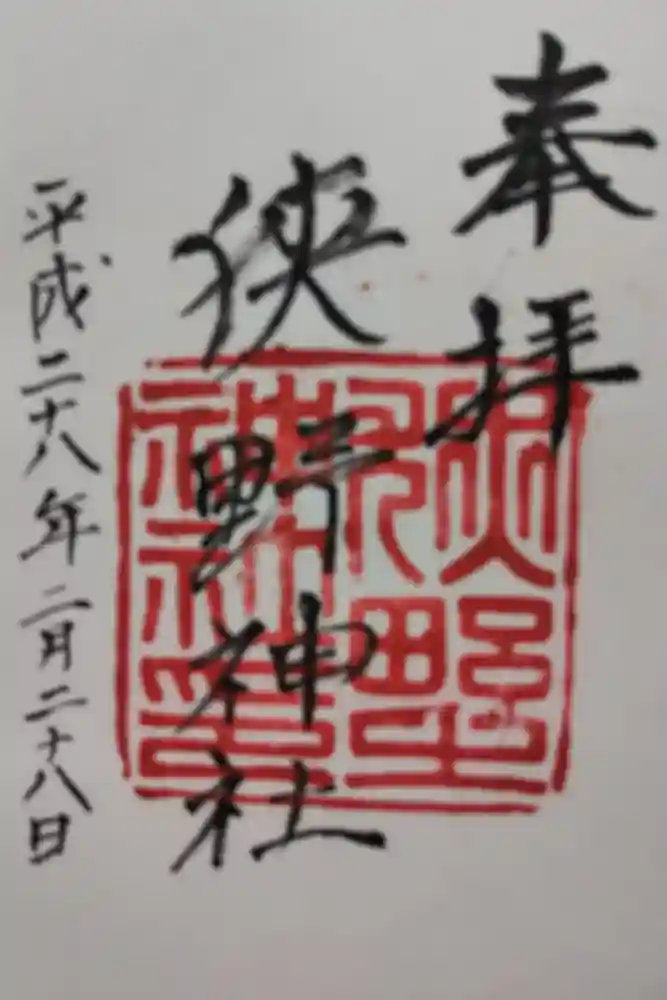 奉拝
狭野神社
平成二十八年二月二十八日
狹野神社印